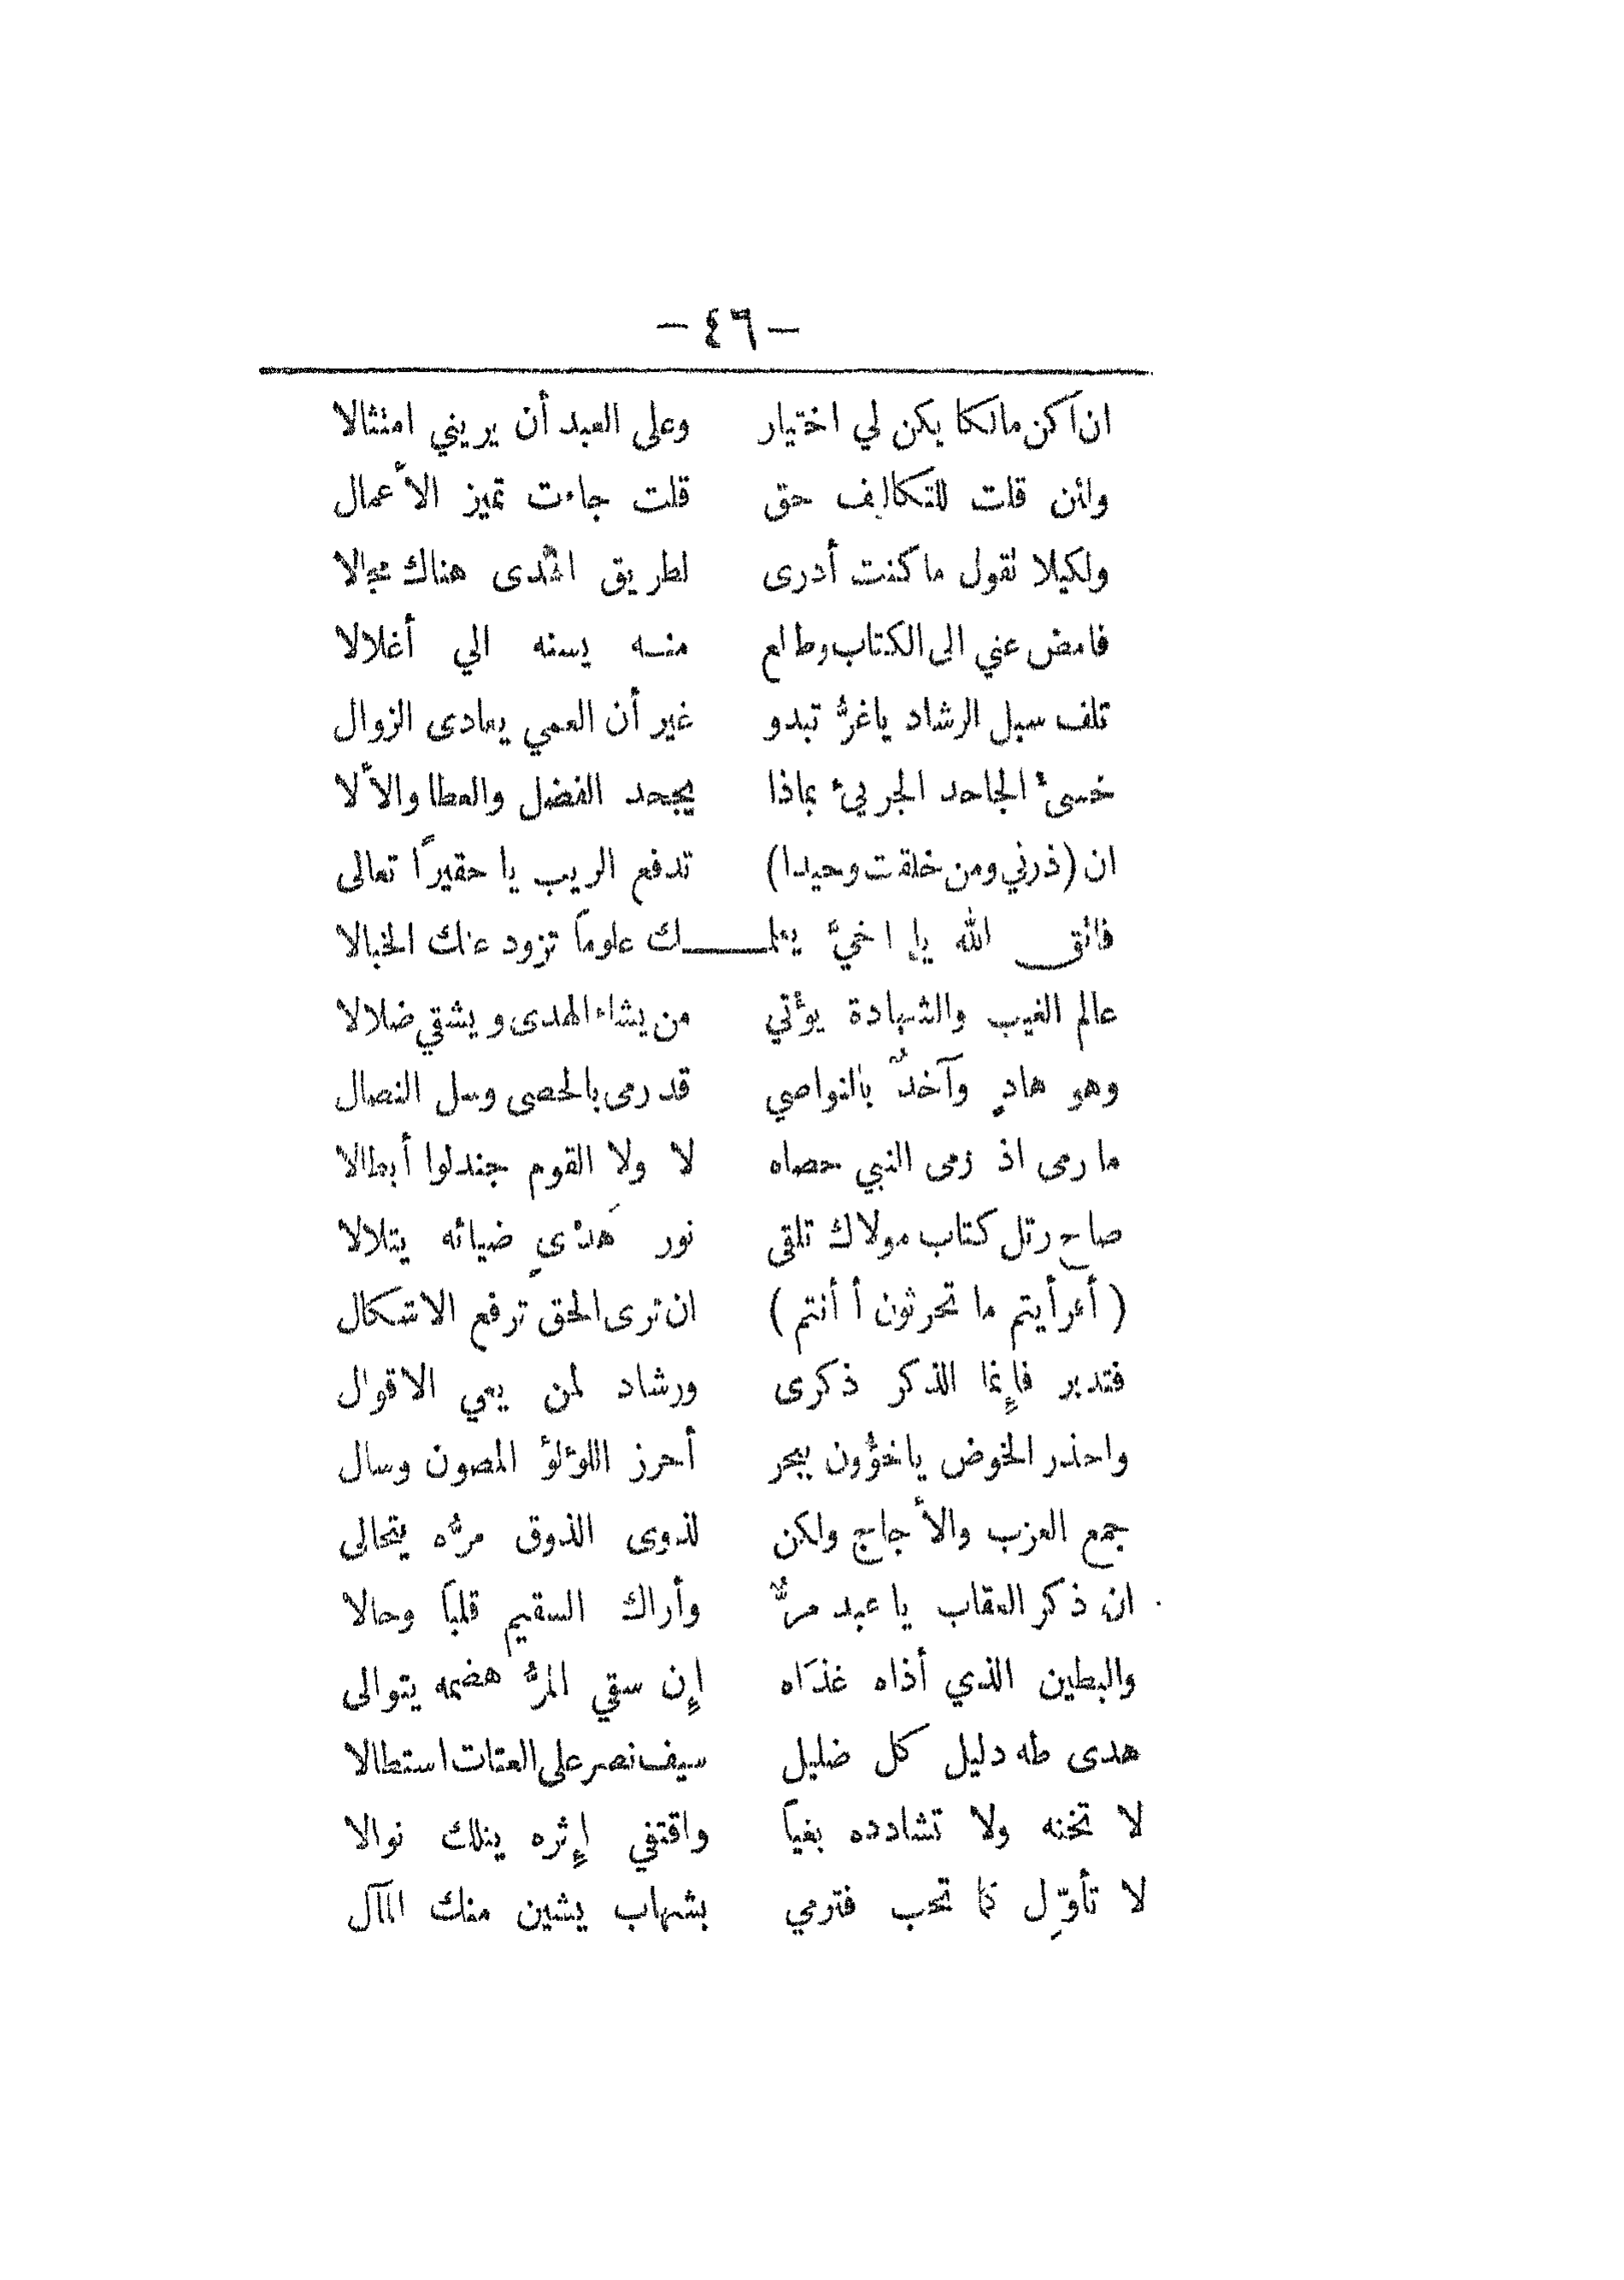 — ٤٦ —
ان اكن مالكا يكن لي اختيار وعلى العبد أن يريني امتثالا
ولئن قلت للتكاليف حق قلت جاءت تميز الأعمال
ولكيلا تقول ما كنت أدرى لطريق الهدى هناك مجالا
فامض عني الى الكتاب وطالع منه يسنه الي أغلالا
تلف سبل الرشاد ياغرُّ تبدو غير أن العمي يعادى الزوال
خسئ الجاحد الجريئ بماذا يجحد الفضل والعطا والألا
ان (ذرني ومن خلقت وحيدا) تدفع الريب يا حقيراً تعالى
فاتق الله يا اخيَّ يعلمـــك علوماً تزود عنك الخبالا
عالم الغيب والشهادة يؤتي من يشاء الهدى ويشقي ضلالا
وهو هادٍ وآخذٌ بالنواصي قد رمى بالحصى وسل النصال
ما رمى اذ رمى النبي حصاه لا ولا القوم جندلوا أبطالا
صاح رتل كتاب مولاك تلقى نور هَدْيٍ ضيائه يتلالا
(أفرأيتم ما تحرثون أ أنتم) ان ترى الحق ترفع الاشكال
فتدبر فإنما الذكر ذكرى ورشاد لمن يعي الاقوال
واحذر الخوض ياخؤُون ببحر أحرز اللؤلؤ المصون وسال
جمع العزب والأجاج ولكن لذوى الذوق مرُّه يتحالى
ان ذكر العقاب يا عبد مرٌّ وأراك السقيم قلباً وحالا
والبطين الذي أذاه غذَاه إن سقي المرُّ هضمه يتوالى
هدى طه دليل كل ضليل سيف نصر على العتات استطالا
لا تخنه ولا تشادده بغياً واقتفي إثره ينلك نوالا
لا تأوِّل كما تحب فترمي بشهاب يشين منك المآل